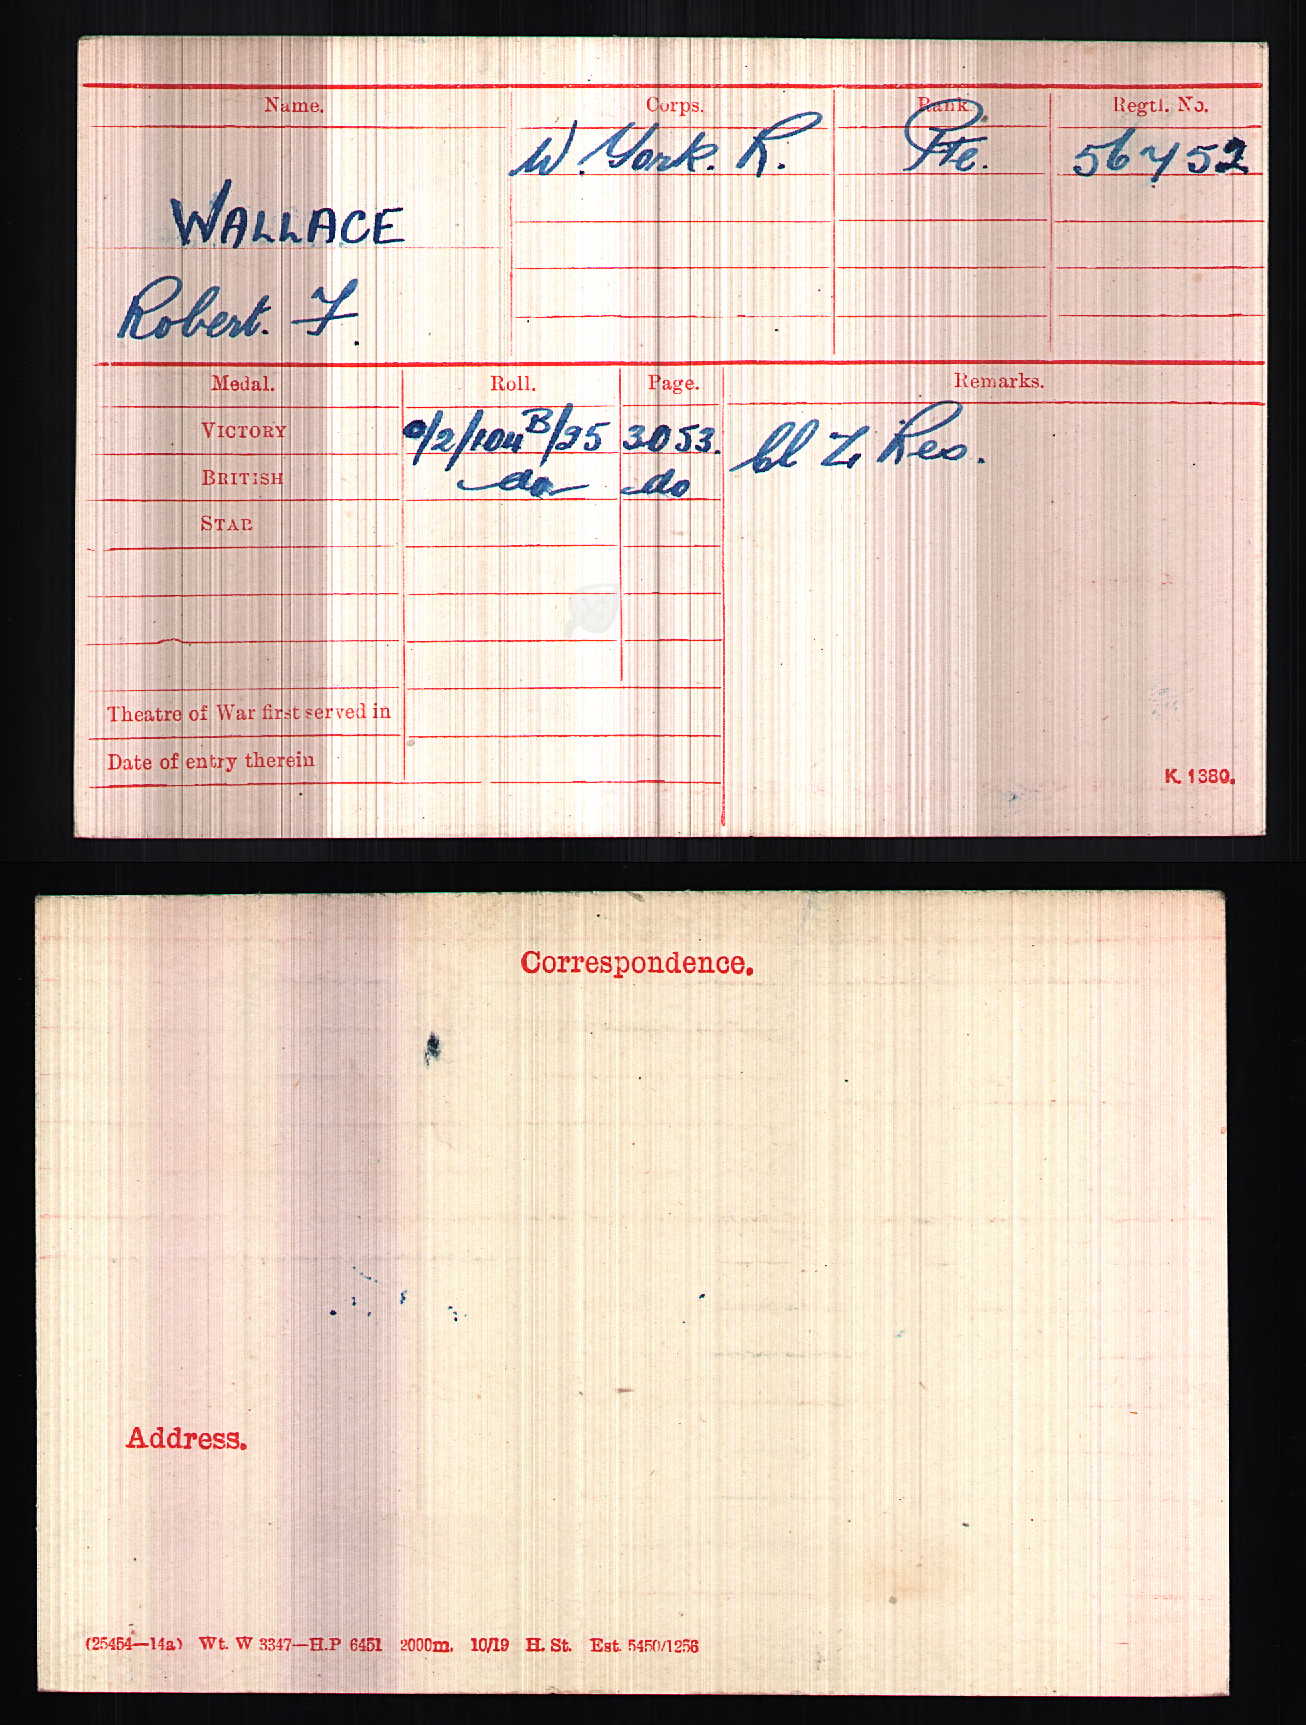 Name. Corps. Rank. Regtl. No.
W. York. R. Pte. 56752
WALLACE
Robert. F.
Medal. Roll. Page. Remarks.
VICTORY O/2/104B/25 3053. Cl Z Res.
BRITISH do do
STAR
Theatre of War first served in
Date of entry therein
K. 1380.
Correspondence.
Address.
(25454—14a) Wt. W 3347—H.P 6451 2000m. 10/19 H. St. Est. 5450/1256